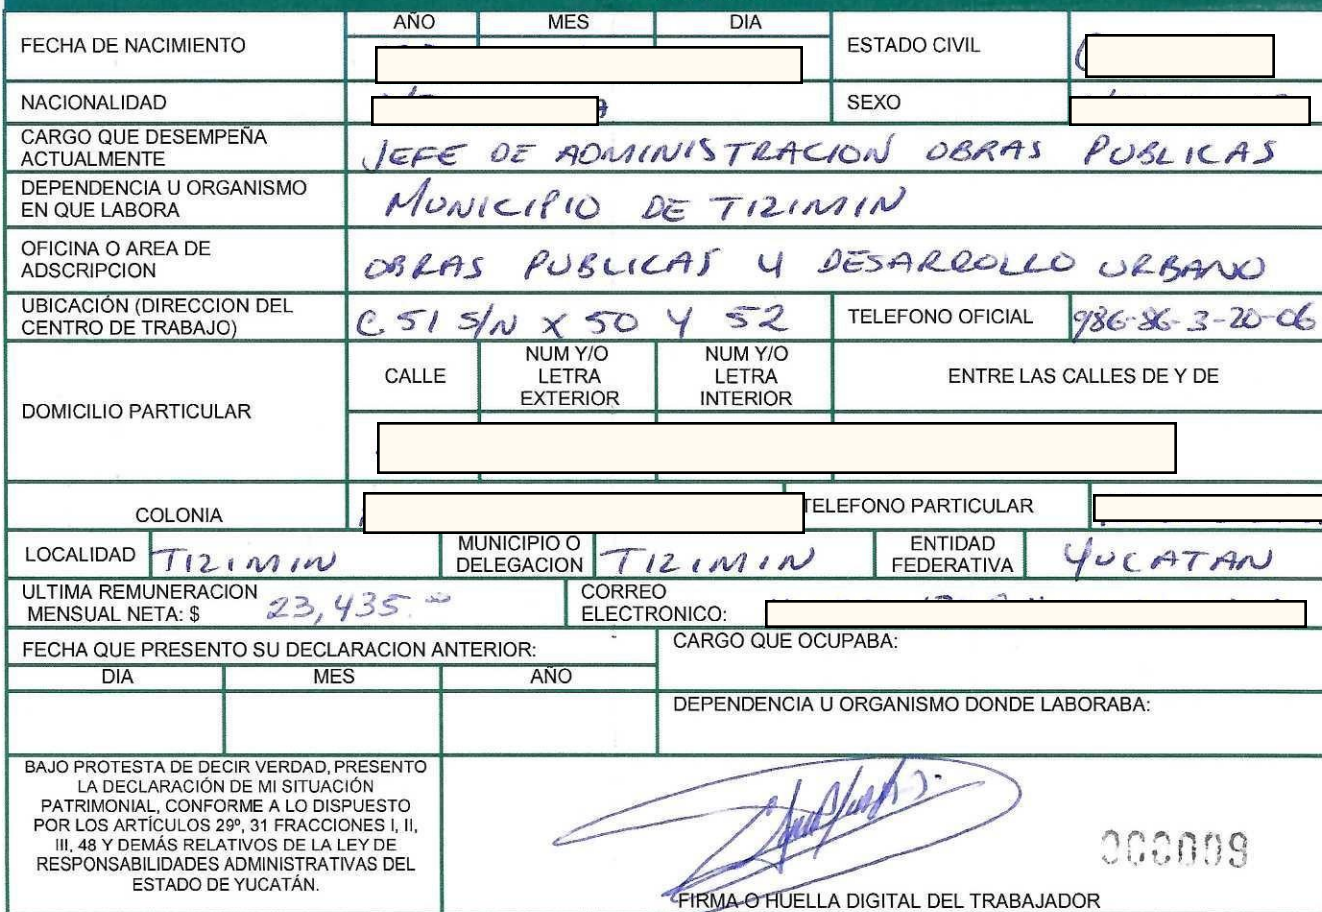 AÑO MES DIA
FECHA DE NACIMIENTO ESTADO CIVIL
NACIONALIDAD SEXO
CARGO QUE DESEMPEÑA
ACTUALMENTE
JEFE DE ADMINISTRACION OBRAS PUBLICAS
DEPENDENCIA U ORGANISMO
EN QUE LABORA
MUNICIPIO DE TIZIMIN
OFICINA O AREA DE
ADSCRIPCION
OBRAS PUBLICAS Y DESARROLLO URBANO
UBICACIÓN (DIRECCION DEL
CENTRO DE TRABAJO)
C. 51 S/N X 50 Y 52
TELEFONO OFICIAL 986-86-3-20-06
DOMICILIO PARTICULAR
CALLE
NUM Y/O
LETRA
EXTERIOR
NUM Y/O
LETRA
INTERIOR
ENTRE LAS CALLES DE Y DE
COLONIA TELEFONO PARTICULAR
LOCALIDAD TIZIMIN
MUNICIPIO O
DELEGACION
TIZIMIN
ENTIDAD
FEDERATIVA
YUCATAN
ULTIMA REMUNERACION
MENSUAL NETA: $ 23,435.00
CORREO
ELECTRONICO:
FECHA QUE PRESENTO SU DECLARACION ANTERIOR:
DIA MES AÑO
CARGO QUE OCUPABA:
DEPENDENCIA U ORGANISMO DONDE LABORABA:
BAJO PROTESTA DE DECIR VERDAD, PRESENTO
LA DECLARACIÓN DE MI SITUACIÓN
PATRIMONIAL, CONFORME A LO DISPUESTO
POR LOS ARTÍCULOS 29º, 31 FRACCIONES I, II,
III, 48 Y DEMÁS RELATIVOS DE LA LEY DE
RESPONSABILIDADES ADMINISTRATIVAS DEL
ESTADO DE YUCATÁN.
000009
FIRMA O HUELLA DIGITAL DEL TRABAJADOR